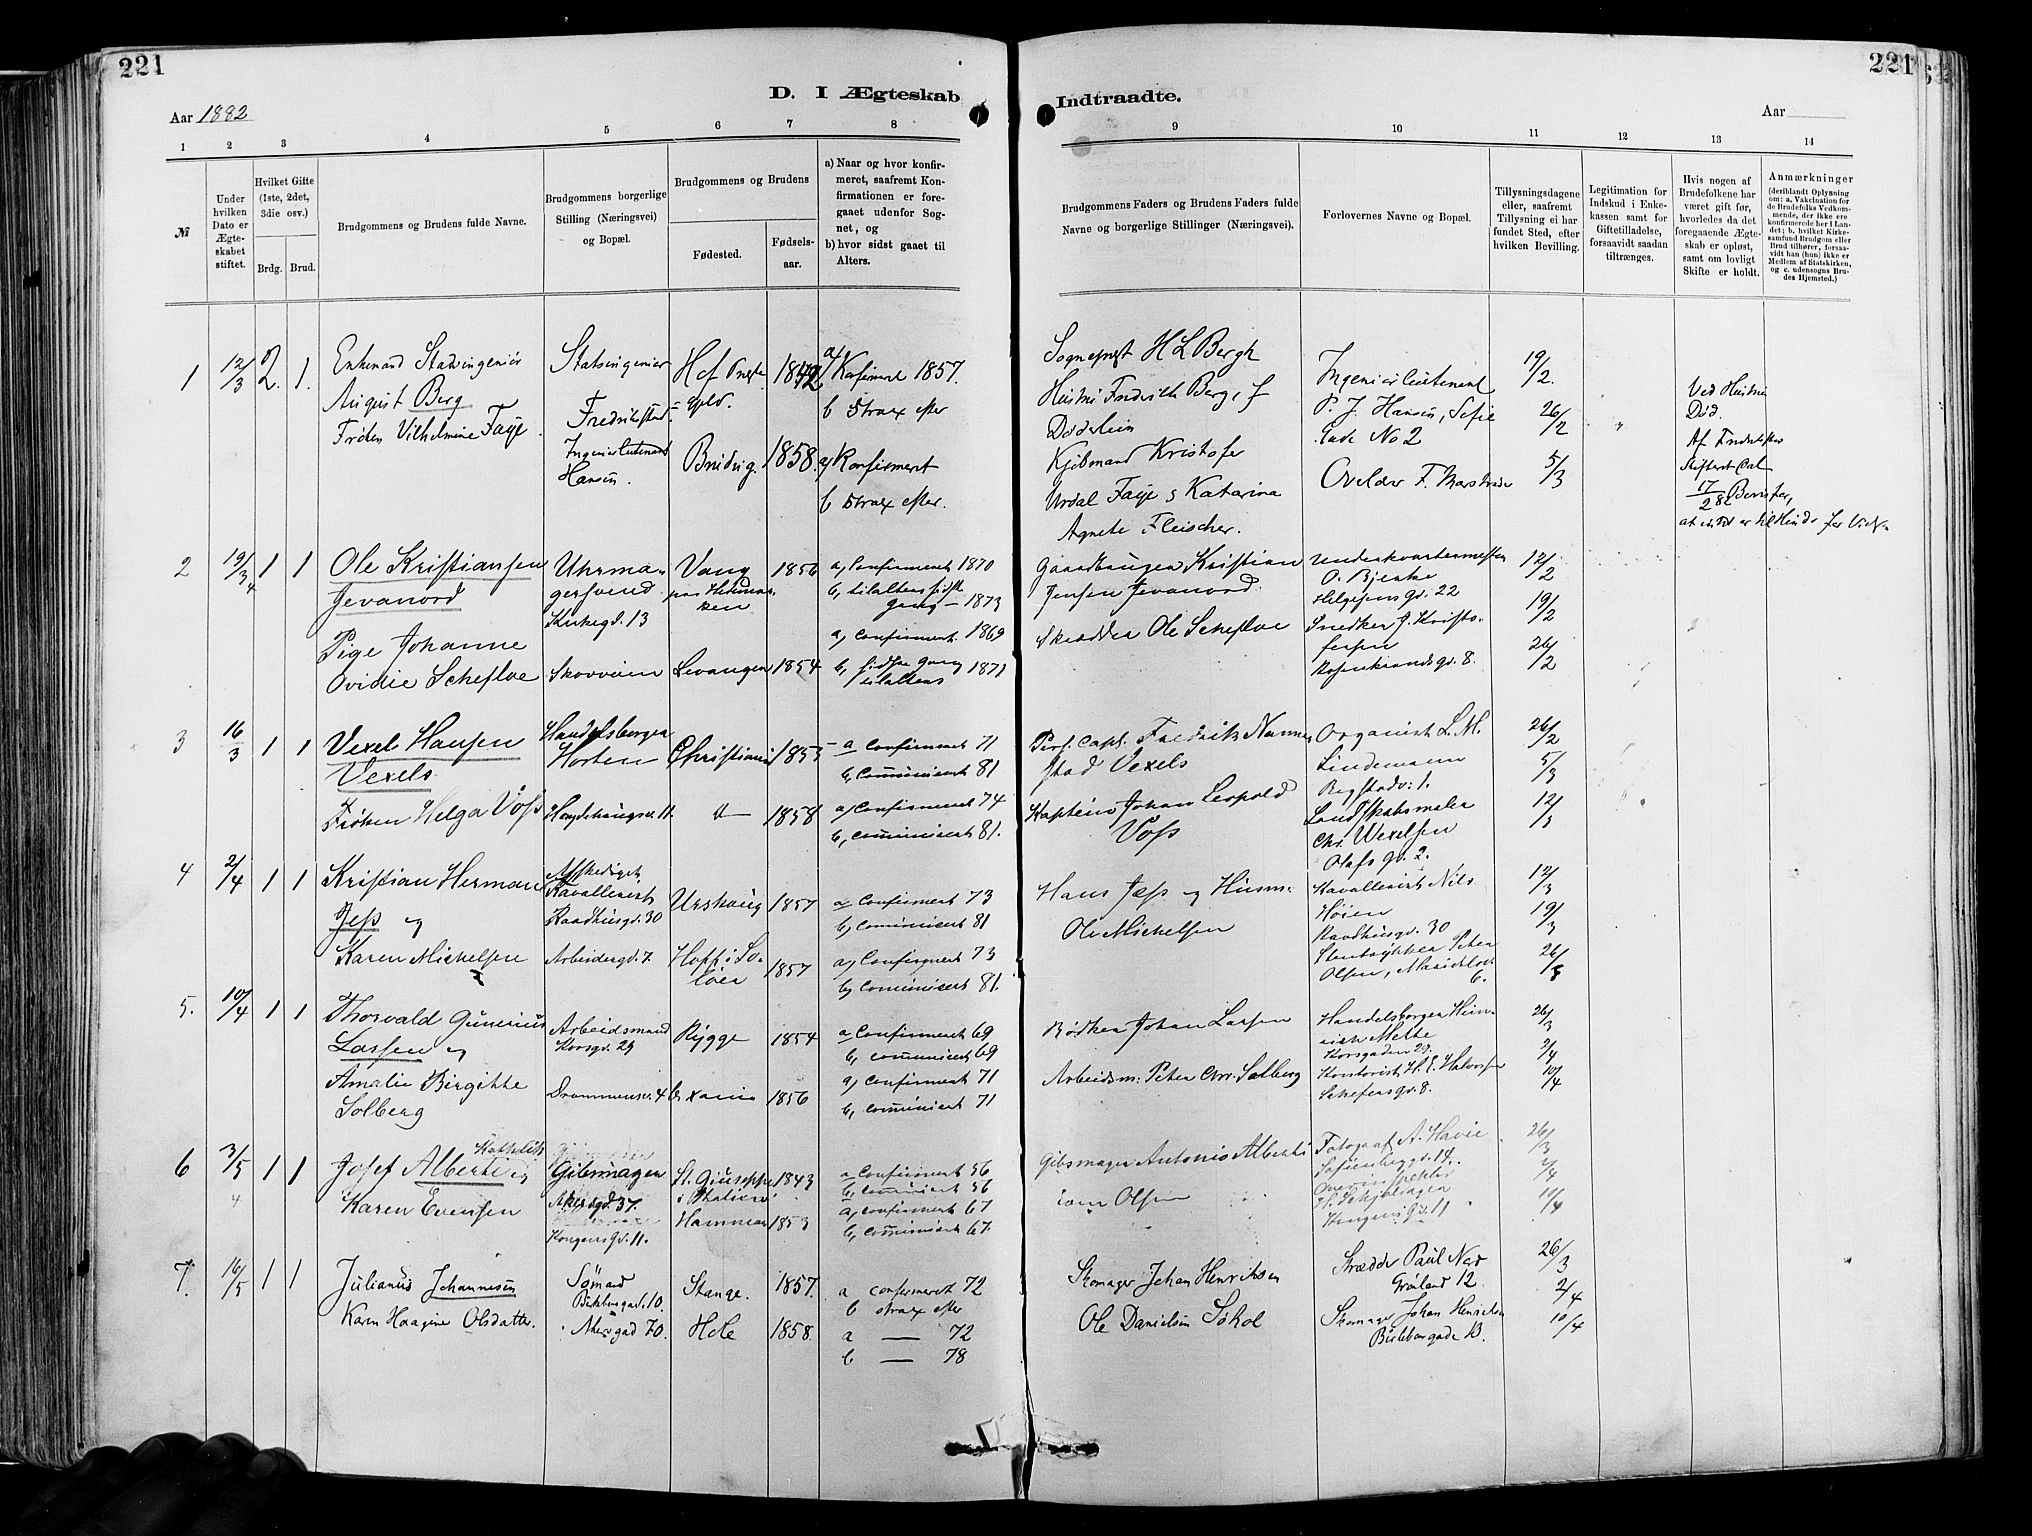 221
D. I Ægteskab
Aar 1882
1 2 3 4 5 6 7 8
№
Under hvilken Dato er Ægteskabet stiftet.
Hvilket Gifte (1ste, 2det, 3die osv.)
Brdg. Brud.
Brudgommens og Brudens fulde Navne.
Brudgommens borgerlige Stilling (Næringsvei) og Bopæl.
Brudgommens og Brudens
Fødested.
Fødselsaar.
a) Naar og hvor konfirmeret, saafremt Konfirmationen er foregaaet udenfor Sognet, og
b) hvor sidst gaaet til Alters.
1 12/3 2. 1.
Enkemand Stadsingeniør
August Berg
Frøken Vilhelmine Faye
Fredrikstad
Ingeniørlieutenant
Hansen.
1842
a/ Konfirmeret 1857.
b Strax efter
1858.
a/ Konfirmeret
b Strax efter.
2 19/3 1 1
Ole Kristiansen
Jevanord
Pige Johanne
Ovidie Schefloe
Uhrmagersvend
Kirkegd. 13
Skovveien
Vang
Levanger
1856
1854
a) Confirmeret 1870
gang – 1873
a) Confirmeret 1869
b, sidste gang 1871
tilalters
3 16/3 1 1
Vexel Hansen
Vexels
Frøken Helga Voss
Handelsborger
Horten
Christiania
1858
a Confirmeret 71
b, communicert 81
a) Confirmeret 74
b, communicert 81.
4 2/4 1 1
Kristian Herman
Jess og
Karen Mickelsen
Afskediget
Kavallerist
Raadhusgd. 30
Arbeidergd. 7
Urskoug
Hoff i Soløer
1857
1857
a) Confirmeret 73
b) Communicert 81
a) Confirmeret 73
b) Communicert 81.
5. 10/4 1 1
Thorvald Gunerius
Larsen og
Amalie Birgitte
Solberg
Arbeidsmand
Korsgd. 29
Drammensv. 4
Rygge
1854
1856
a Confirmeret 69
b, communicert 69
a) Confirmeret 71
b, communicert 71
6 3/5 1 1
Katholik
Josef Alberti og
Karen Evensen
Gibsmager
Akersgd. 37.
Kongensgd. 11.
St. Giuseppe
i Italien
1843
1853
a Confirmeret 56
b, communicert 56
a) Confirmeret 67
b, communicert 67.
7. 16/5 1 1
Julianus Johannesen
Karen Haagine Olsdatter.
Sømand
Birkeborgad. 10.
Akersgad 70.
Stange.
Hole
1857.
1858.
a confirmeret 72
b strax efter
a — 72
b — 78
221
Indtraadte.
Aar
9 10 11 12 13 14
Brudgommens Faders og Brudens Faders fulde Navne og borgerlige Stillinger (Næringsvei).
Forlovernes Navne og Bopæl.
Tillysningsdagene eller, saafremt Tillysning ei har fundet Sted, efter hvilken Bevilling.
Legitimation for Indskud i Enkekassen samt for Giftetilladelse, forsaavidt saadan tiltrænges.
Hvis nogen af Brudefolkene har været gift før, hvorledes da det foregaaende Ægteskab er opløst, samt om lovligt Skifte er holdt.
Anmærkninger
(deriblandt Oplysning om: a. Vakcination for de Brudefolks Vedkommende, der ikke ere konfirmerede her i Landet; b. hvilket Kirkesamfund Brudgom eller Brud tilhører, forsaavidt han (hun) ikke er Medlem af Statskirken, og c. udensogns Brudes Hjemsted.)
Sogneprest H L Bergh
Hustru Fredrikke Berg, f
Døderlein
Kjøbmand Kristofer
Urdal Faye & Katarina
Agnete Fleischer.
Ingeniørlieutenant
P. J. Hansen, Sofiegade No 2
19/2.
26/2
5/3
Ved Hustrus
Død.
17/2 82
Gaardbruger Kristian
Jensen Jevanord.
Skrædder Ole Schefloe
Underkvartermester
O. Bjerke
Helgesensgd. 22
Snedker J. Kristofersen
Rosenkrandsgd. 8.
12/2
19/2
26/2
Fredrik Nannestad Vexels
Kaptein Johan Leopold
Voss
Organist L. M.
Lindemann
Landskabsmaler
Chr. Wexelsen
Olafsgd. 2.
26/2
5/3
12/3
Hans Jess
Ole Mickelsen
Kavallerist Nils
Høien
Raadhusgd. 30
Stentrykker Peter
Olsen
12/3
19/3
26/3
Bødker Johan Larsen
Arbeidsm: Peter Chr. Solberg
Handelsborger Heinrich Meltte
Korsgaden 29.
Kontorist H. E. Halvorsen
26/3
2/4
10/4
Gibsmager Antonio Alberti
Iver Olsen
Fotograf A. Havie
Sofienberggd. 14.
Kongensgd. 11
26/3
2/4
10/4
Skomager Johan Henriksen
Ole Danielsen Søhol
Skrædder Paul Nad
Grønland 12
Skomager Johan Henriksen
26/3
2/4
10/4